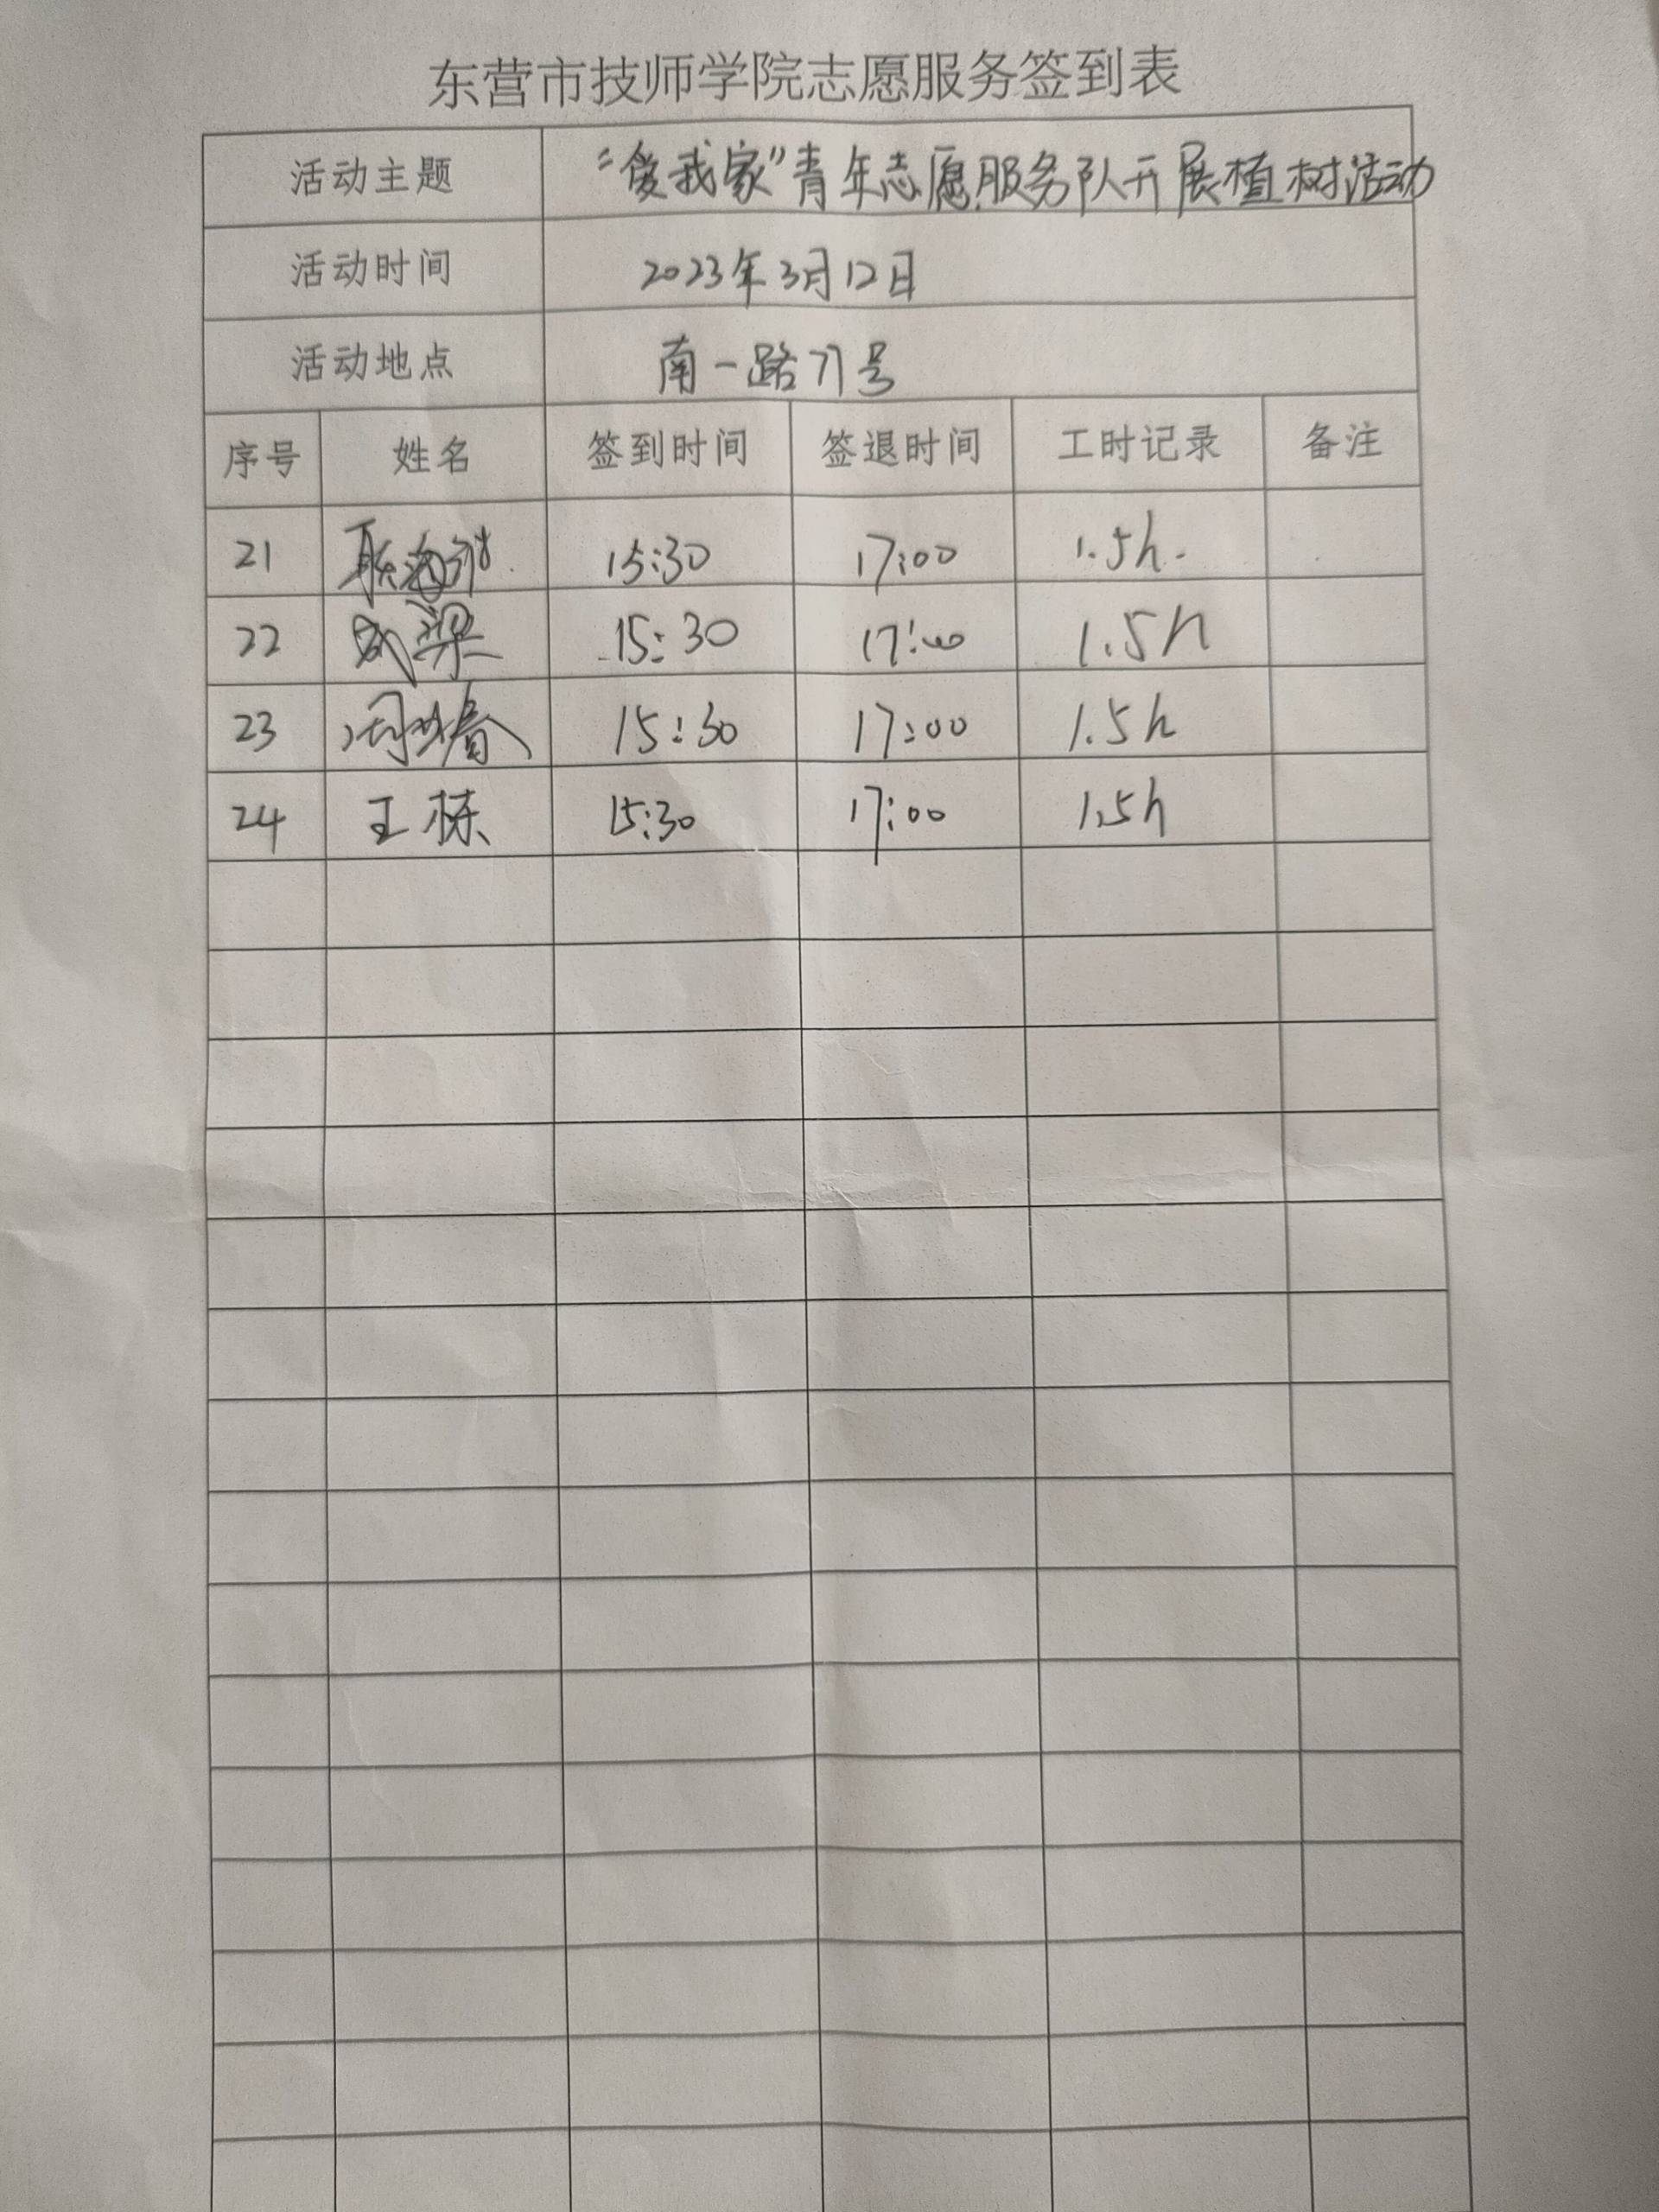 东营市技师学院志愿服务签到表
活动主题 “爱我家”青年志愿服务队开展植树活动
活动时间 2023年3月12日
活动地点 南一路71号
序号 姓名 签到时间 签退时间 工时记录 备注
21 15:30 17:00 1.5h.
22 梁 15:30 17:00 1.5h
23 春 15:30 17:00 1.5h
24 王栋 15:30 17:00 1.5h